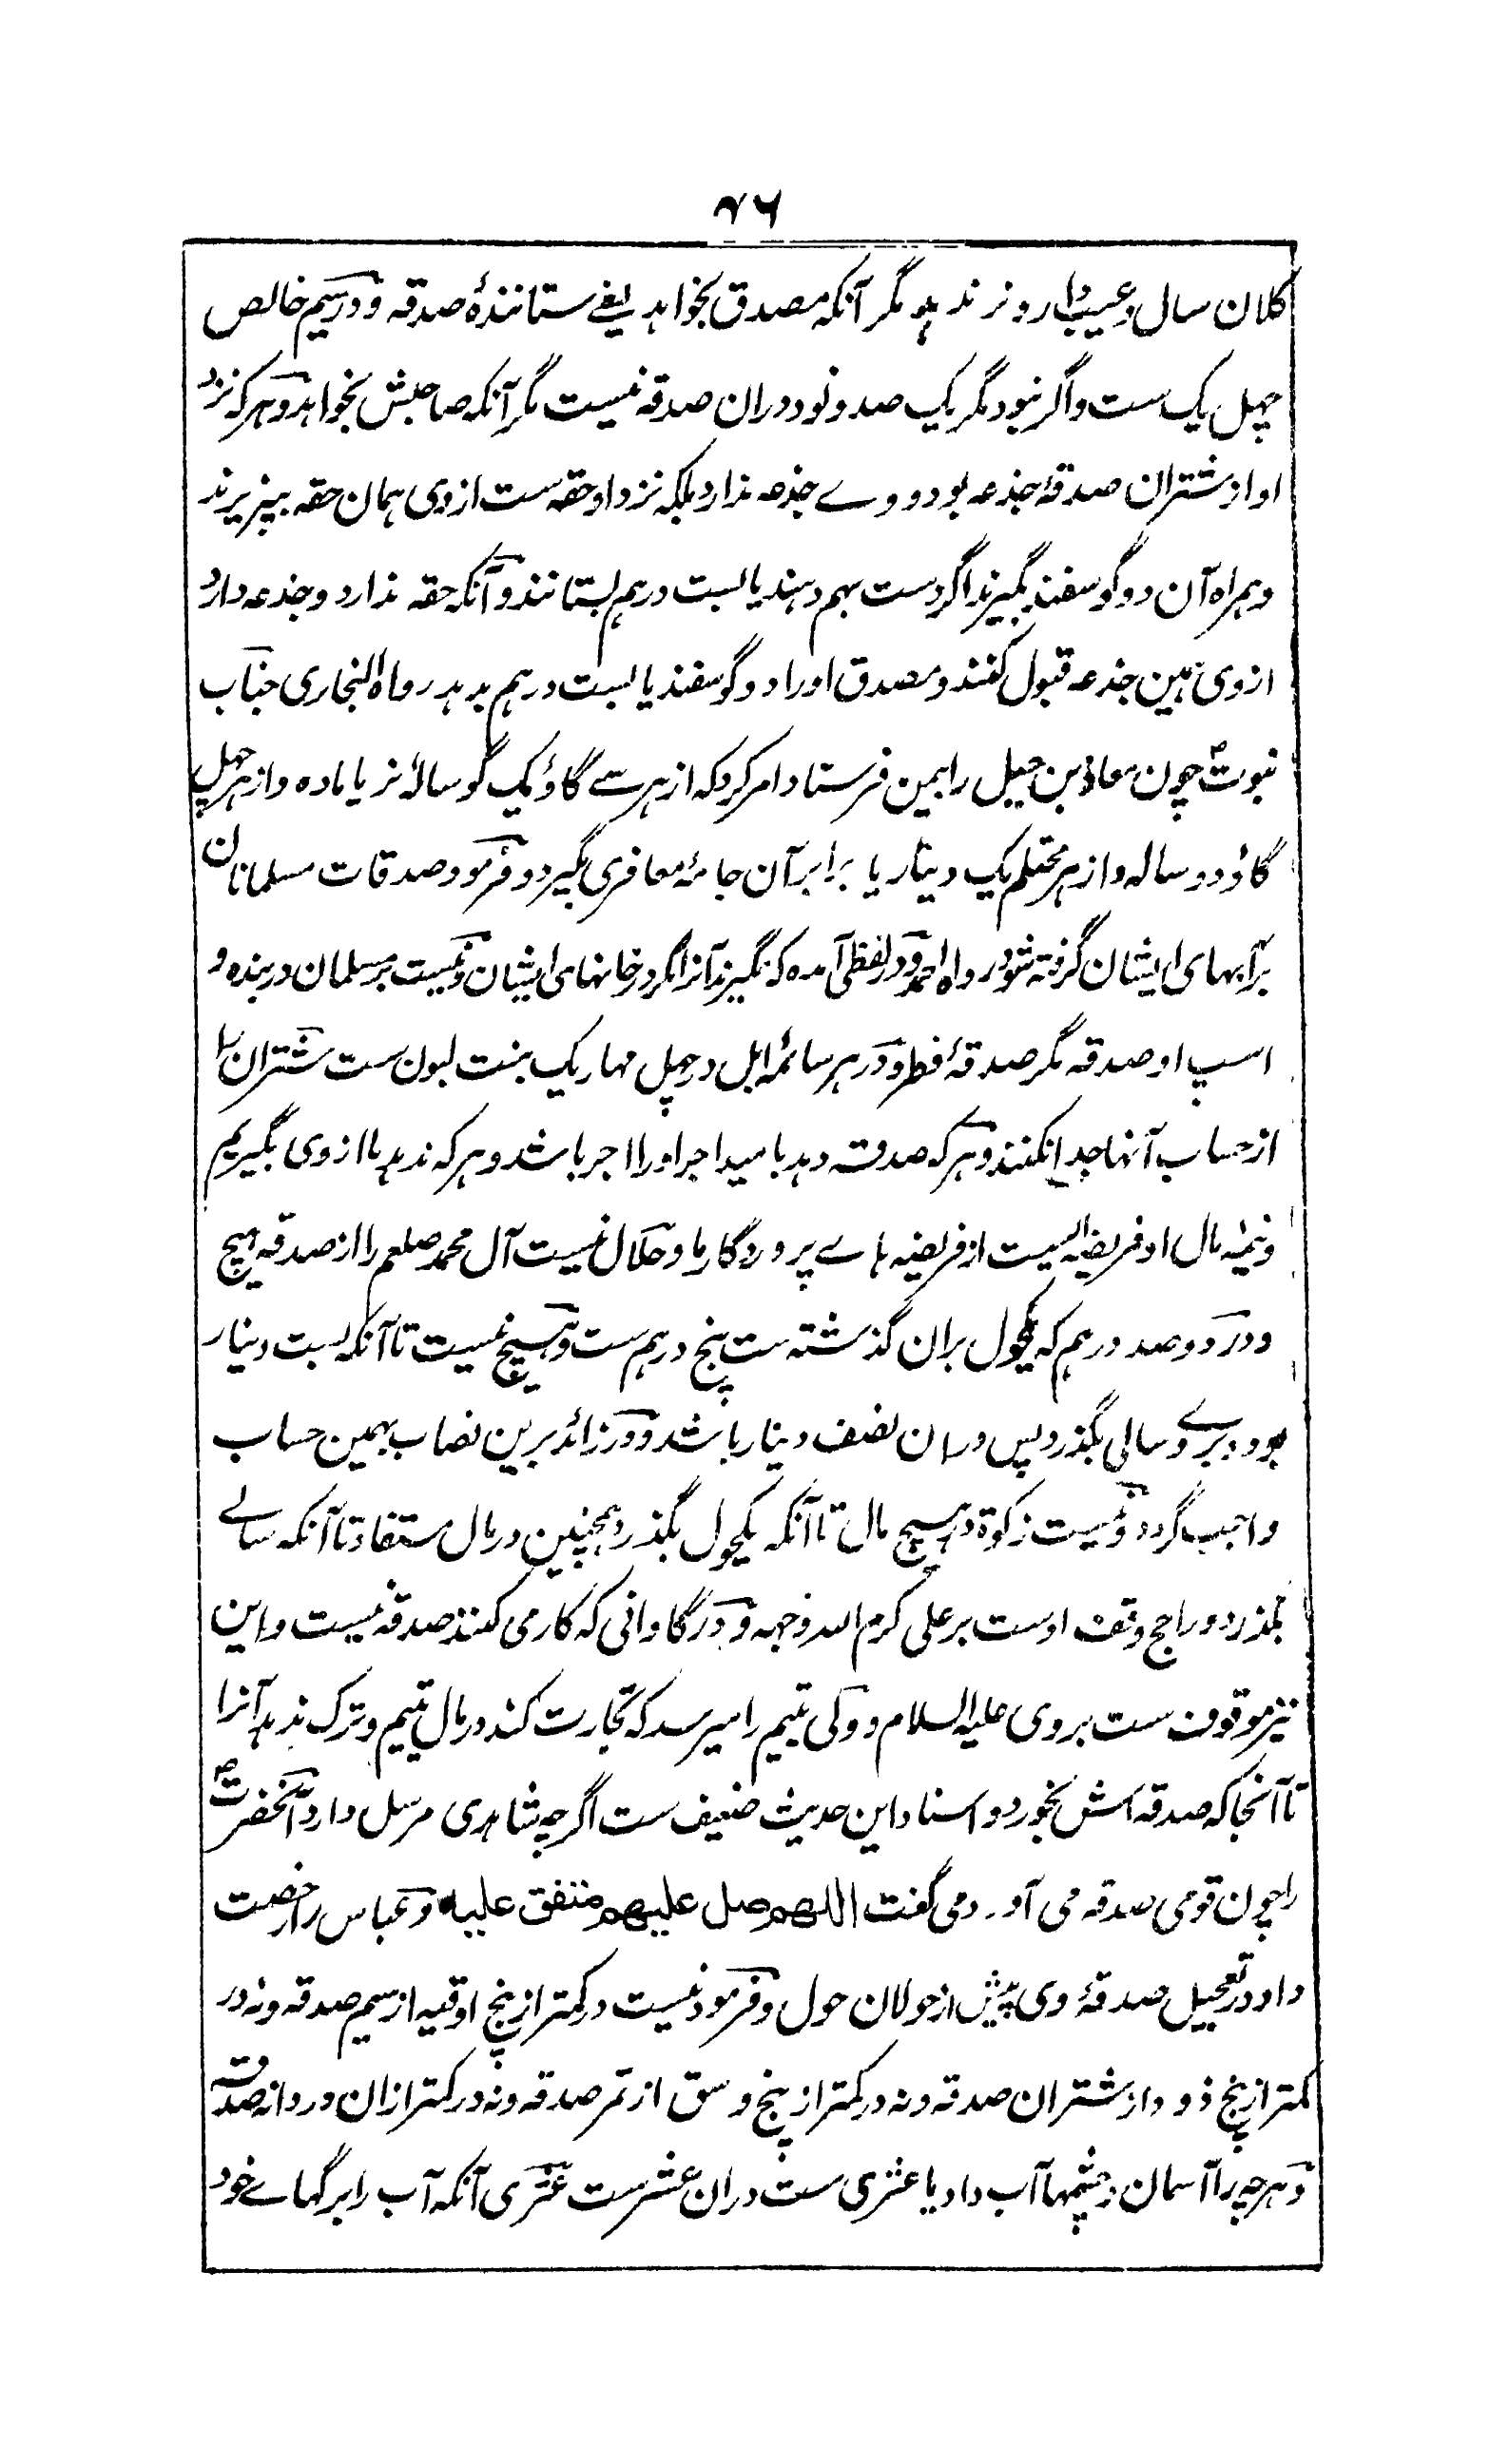 ۷۶
کلان سال و عیب دار و نر ندہد مگر آنکہ مصدق بخواہد یعنے ستانندۂ صدقہ و در سیم خالص
چہل یک ست و اگر نبود مگر یک صد و نود دران صدقہ نیست مگر آنکہ صاحبش بخواہد و ہر کہ نزد
او از شتران صدقۂ جذعہ بود و وے جذعہ ندارد بلکہ نزد او حقہ ست ازوی ہمان حقہ بپزیرند
و ہمراہ آن دو گوسفند بگیرند اگر دست بہم دہند یا بست درہم بستانند و آنکہ حقہ ندارد و جذعہ دارد
ازوی ہمین جذعہ قبول کنند و مصدق او را دو گوسفند یا بست درہم بدہد رواہ البخاری جناب
نبوت چون معاذ بن جبل را بیمن فرستاد امر کرد کہ از ہر سے گاؤ یک گوسالۂ نر یا مادہ و از ہر چہل
گاؤ دو سالہ و از ہر محتلم یک دینار یا برابر آن جامۂ معافری بگیرد و فرمود صدقات مسلمانان
بر آبہای ایشان گرفتہ شود رواہ احمد و در لفظی آمدہ کہ نگیرند آنرا مگر در خانہای ایشان و نیست بر مسلمان در بندہ و
اسپ او صدقہ مگر صدقۂ فطر و در ہر سائمۂ ابل در چہل مہار یک بنت لبون ست شتران را
از حساب آنہا جدا نکنند و ہر کہ صدقہ دہد بامید اجر او را اجر باشد و ہر کہ ندہد ما ازوی بگیریم
و نیمۂ مال او فریضہ ایست از فریضہ ہاے پروردگار ما و حلال نیست آل محمد صلعم را از صدقہ ہیچ
و در دو صد درہم کہ یکحول بران گذشتہ ست پنج درہم ست و ہیچ نیست تا آنکہ بست دینار
بود و برے سالی بگذرد پس دران نصف دینار باشد و در زائد برین نصاب بہمین حساب
واجب گردد و نیست زکوۃ در ہیچ مال تا آنکہ یکحول بگذرد ہمچنین در مال مستفاد تا آنکہ سالے
بگذرد و راجح وقف اوست بر علی کرم اللہ وجہہ و در گاوانی کہ کار می کنند صدقہ نیست و این
نیز موقوف ست بروی علیہ السلام و ولی یتیم را میرسد کہ تجارت کند در مال یتیم و ترک ندہد آنرا
تا آنجا کہ صدقہ اش بخورد و اسناد این حدیث ضعیف ست اگرچہ شاہدی مرسل دارد آنحضرت
را چون قومی صدقہ می آورد می گفت اللهم صل عليهم متفق عليه و عباس را رخصت
داد در تعجیل صدقۂ وی پیش از حولان حول و فرمود نیست در کمتر از پنج اوقیہ از سیم صدقہ و نہ در
کمتر از پنج ذود از شتران صدقہ و نہ در کمتر از پنج وسق از تمر صدقہ و نہ در کمتر ازان در دانہ صدقہ
و ہر چہ را آسمان و چشمہا آب داد یا عثری ست دران عشرست عثری آنکہ آب را برگہاے خود